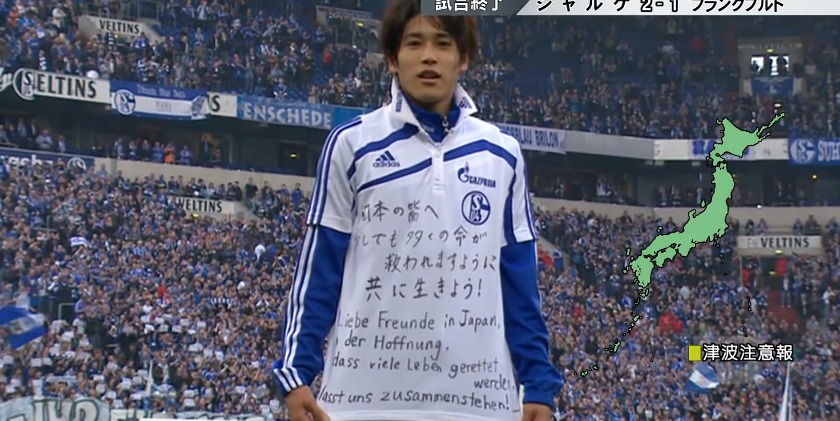 試合終了 シャルケ 2-1 フランクフルト
VELTINS
VELTINS
ENSCHEDE
VELTINS
VELTINS
adidas
GAZPROM
日本の皆へ
少しでも多くの命が
救われますように
共に生きよう!
Liebe Freunde in Japan,
der Hoffnung,
dass viele Leben gerettet
werden,
lasst uns zusammenstehen!
津波注意報